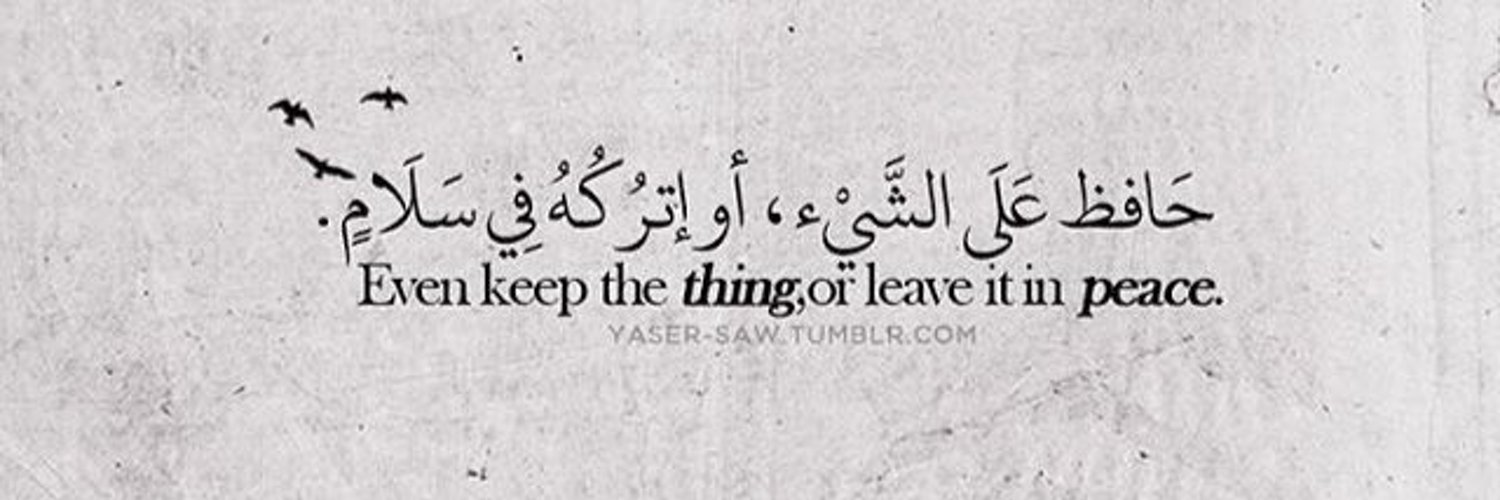 حَافظ عَلَى الشَّيْء، أو إترُكُهُ فِي سَلَامٍ.
Even keep the thing,or leave it in peace.
YASER-SAW.TUMBLR.COM